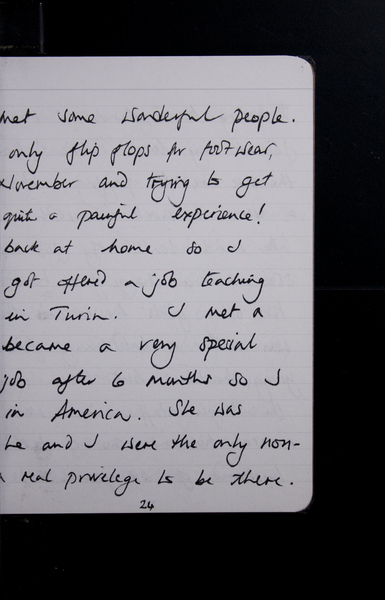 met some wonderful people.
only flip flops for footwear,
November and trying to get
quite a painful experience!
back at home so I
got offered a job teaching
in Turin. I met a
became a very special
job after 6 months so I
in America. She was
he and I were the only non-
a real privelege to be there.
24